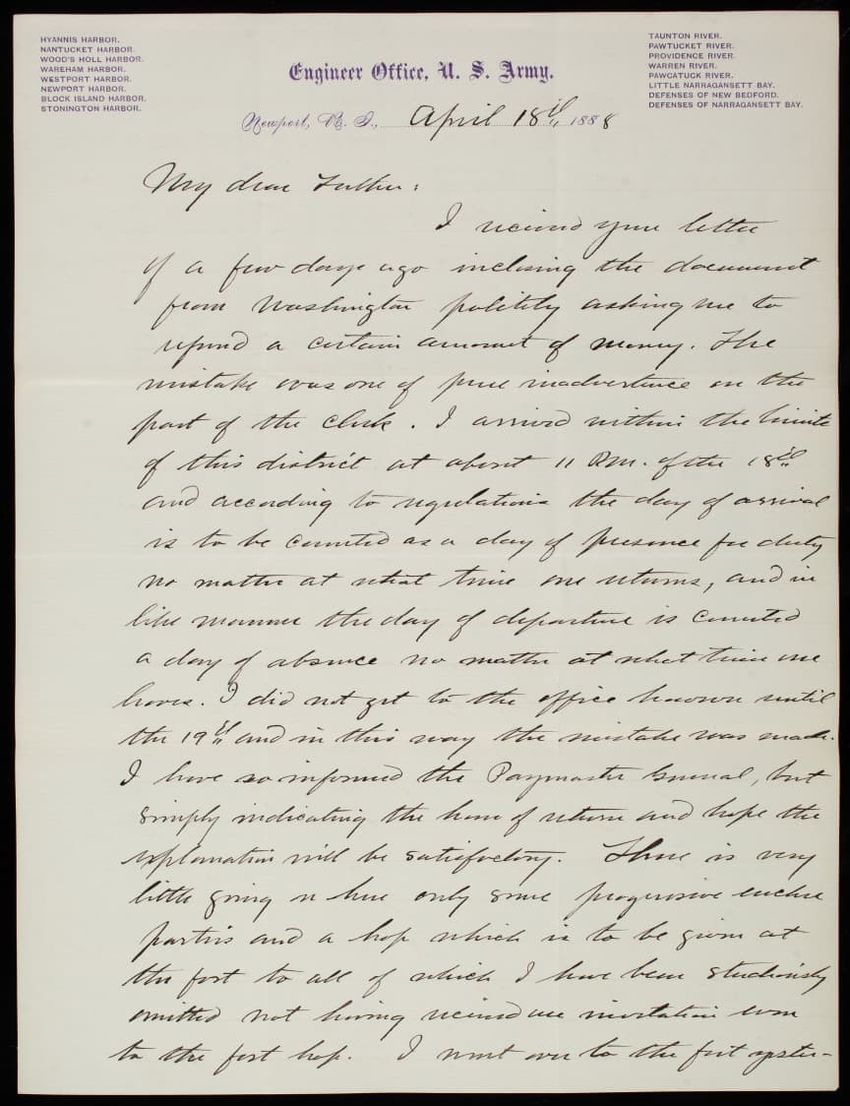 HYANNIS HARBOR.
NANTUCKET HARBOR.
WOOD'S HOLL HARBOR.
WAREHAM HARBOR.
WESTPORT HARBOR.
NEWPORT HARBOR.
BLOCK ISLAND HARBOR.
STONINGTON HARBOR.
Engineer Office, U. S. Army.
TAUNTON RIVER.
PAWTUCKET RIVER.
PROVIDENCE RIVER.
WARREN RIVER.
PAWCATUCK RIVER.
LITTLE NARRAGANSETT BAY.
DEFENSES OF NEW BEDFORD.
DEFENSES OF NARRAGANSETT BAY.
Newport, R. I., April 18th, 1888
My dear Father:
I received your letter
of a few days ago inclosing the document
from Washington politely asking me to
refund a certain amount of money. The
mistake was one of pure inadvertence on the
part of the clerk. I arrived within the limits
of this district at about 11 P.M. of the 18th
and according to regulations the day of arrival
is to be counted as a day of presence for duty
no matter at what time one returns, and in
like manner the day of departure is counted
a day of absence no matter at what time one
leaves. I did not get to the office however until
the 19th and in this way the mistake was made.
I have so informed the Paymaster General, but
simply indicating the hour of return and hope the
explanation will be satisfactory. There is very
little going on here only some progressive euchre
parties and a hop which is to be given at
the fort to all of which I have been studiously
omitted not having received one invitation even
to the fort hop. I went over to the fort yester-